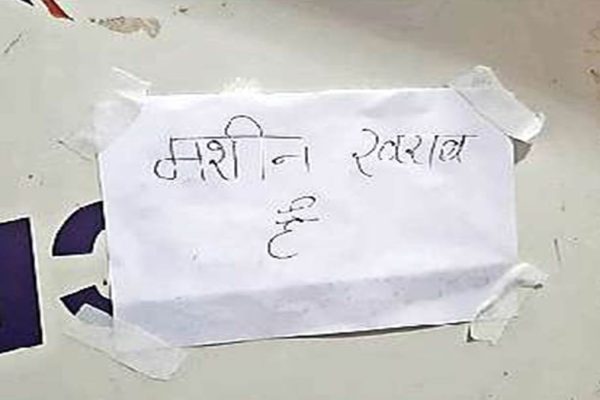 मशीन खराब
है